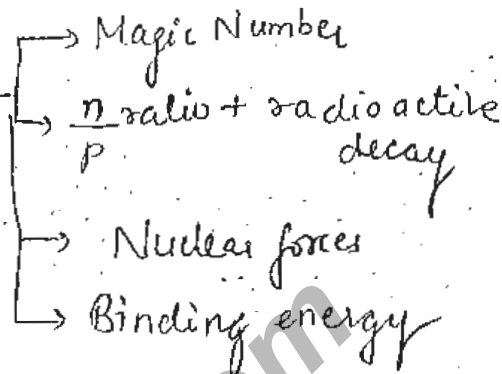 → Magic Number
→ n/p ratio + radioactive
decay
→ Nuclear forces
→ Binding energy
om